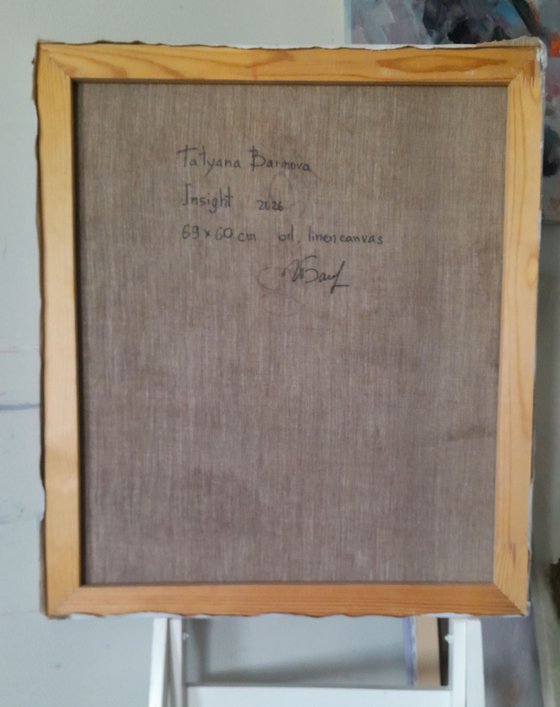 Tatyana Barinova
Insight 2026
69 x 60 cm oil, linen canvas